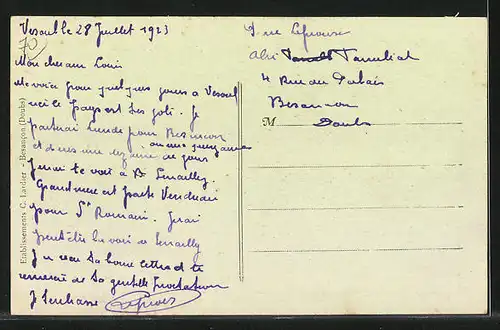 Vesoul le 28 Juillet 1923
70
Mon cher ami Louis
Me voici pour quelques jours a Vesoul
ici le pays est très joli. Je
partirai Lundi pour Besancon
ou une quinzaine
et dans une dizaine de jours
J'irai te voir à
Grand mere est partie Vendredi
pour St Romain. J'irai
peut être la voir a
J'ai recu ta bonne lettre et te
remercie de ta gentille invitation
Je t'embrasse
Etablissements C. Lardier - Besançon (Doubs)
4 Rue du Palais
Besancon
M
Doubs